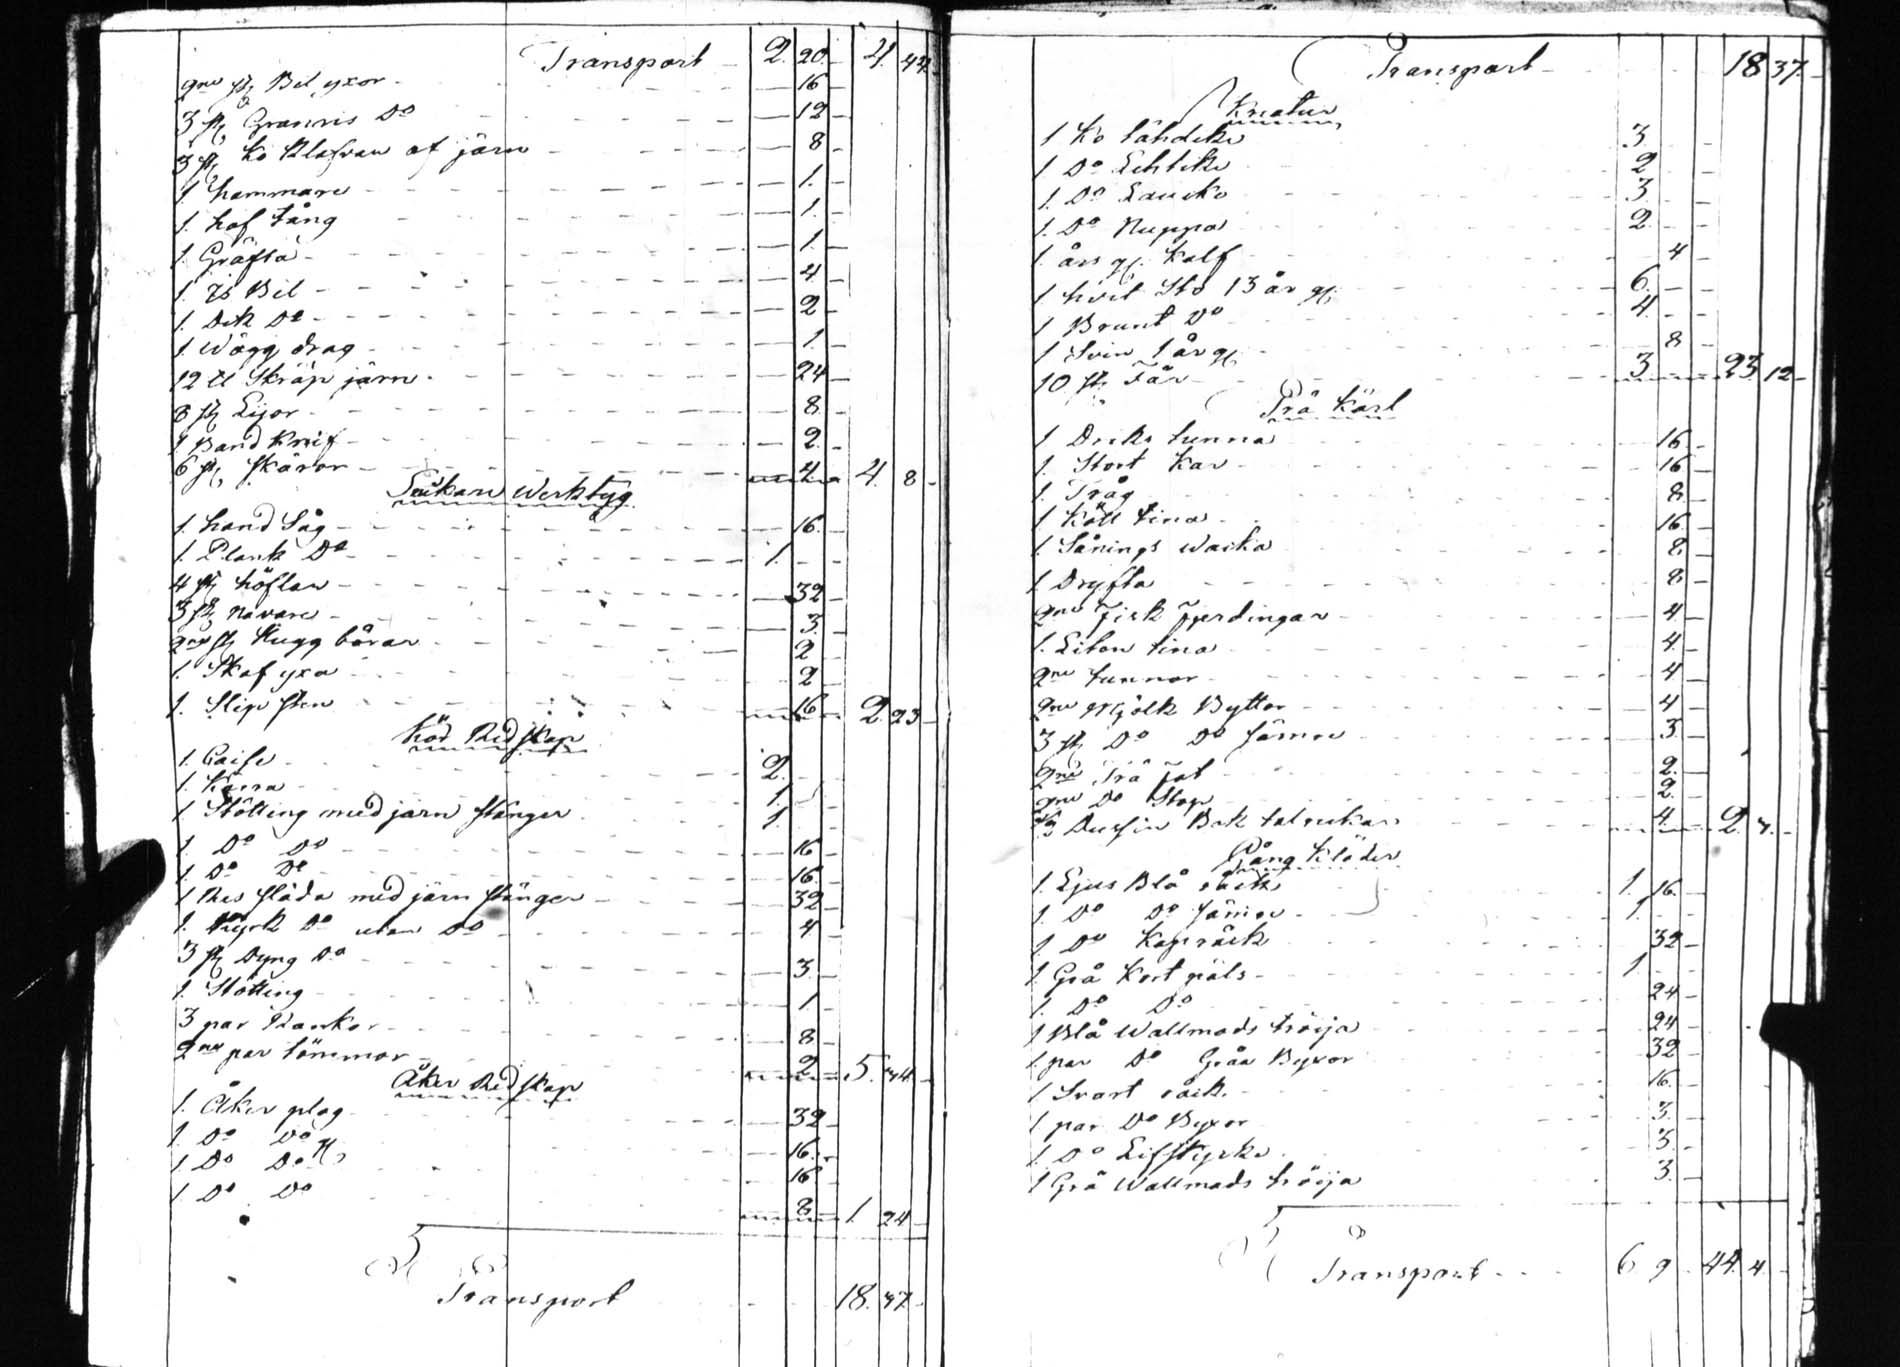 Transport 2. 20. 4. 44.
2ne st. Bil yxor 16
3 st. Granris Do 12
3 st. Ko Klafvar af järn 8
1 hammare 1.
1. hof tång 1.
1. Gräfta 1.
1. Is Bil 4
1. Dek Do 2
1 Wägg drag 1.
12 ℔ Skräp järn 24
8 st. Lijor 8
1 Band Knif 2.
6 st. Skäror 4 4. 8
Snikare Werktyg
1. hand Såg 16.
1. Plank Do 1.
4 st. höflar 32
3 st. navare 3.
2ne st. Kugg bårar 2
1. Skaf yxa 2
1. Slip sten 16 2. 23
Kör Redskap
1. Caise 2.
1. Kärra 1.
1 Stötting med järn stänger 1.
1 Do Do 16
1. Do Do 16.
1 Res släda med järn stänger 32
1. Kyrk Do utan Do 4
3 st. Dyng Do 3.
1. Stötting 1
3 par Rankor 8
2ne par tömmar 2 5. 34.
Åker Redskap
1. Åker plog 32
1. Do Do 16.
1 Do Do 16
1. Do Do 8 1. 24
Transport 18. 37.
Transport 18 37.
Kreatur
1 Ko Tähdike 3.
1 Do Lehtike 2
1. Do Lauiko 3
1. Do Nuppo 2.
1. års gl. Kalf 4
1 hvit Sto 13 år gl. 6.
1 Brunt Do 4
1 Svin 1 år gl. 8
10 st. Får 3 23 12
Trä Kärl
1 Driks tunna 16
1. Stort Kar 16
1. Tråg 8
1 Kött tina 16
1. Sånings wacka 8
1 Dryfta 8
2ne Fisk Fjerdingar 4
1. Liten tina 4.
2ne tunnor 4
2ne Mjölk Byttor 4
3 st. Do Do sämre 3
2ne Trä Fat 2.
2ne Do Stop 2.
½ Dussin Bek talrickar 4. 2. 4.
Gång Kläder
1. Ljus Blå råck 1. 16.
1. Do Do sämre 1.
1. Do Kapråck 32
1 Grå Kort päls 1
1. Do Do 24
1 Blå Wallmads tröija 24
1 par Do Gråa Byxor 32
1 Svart råck 16.
1 par Do Byxor 3.
1. Do Lifstycke 3.
1 Grå Wallmads tröija 3.
Transport 6 9 44. 4.